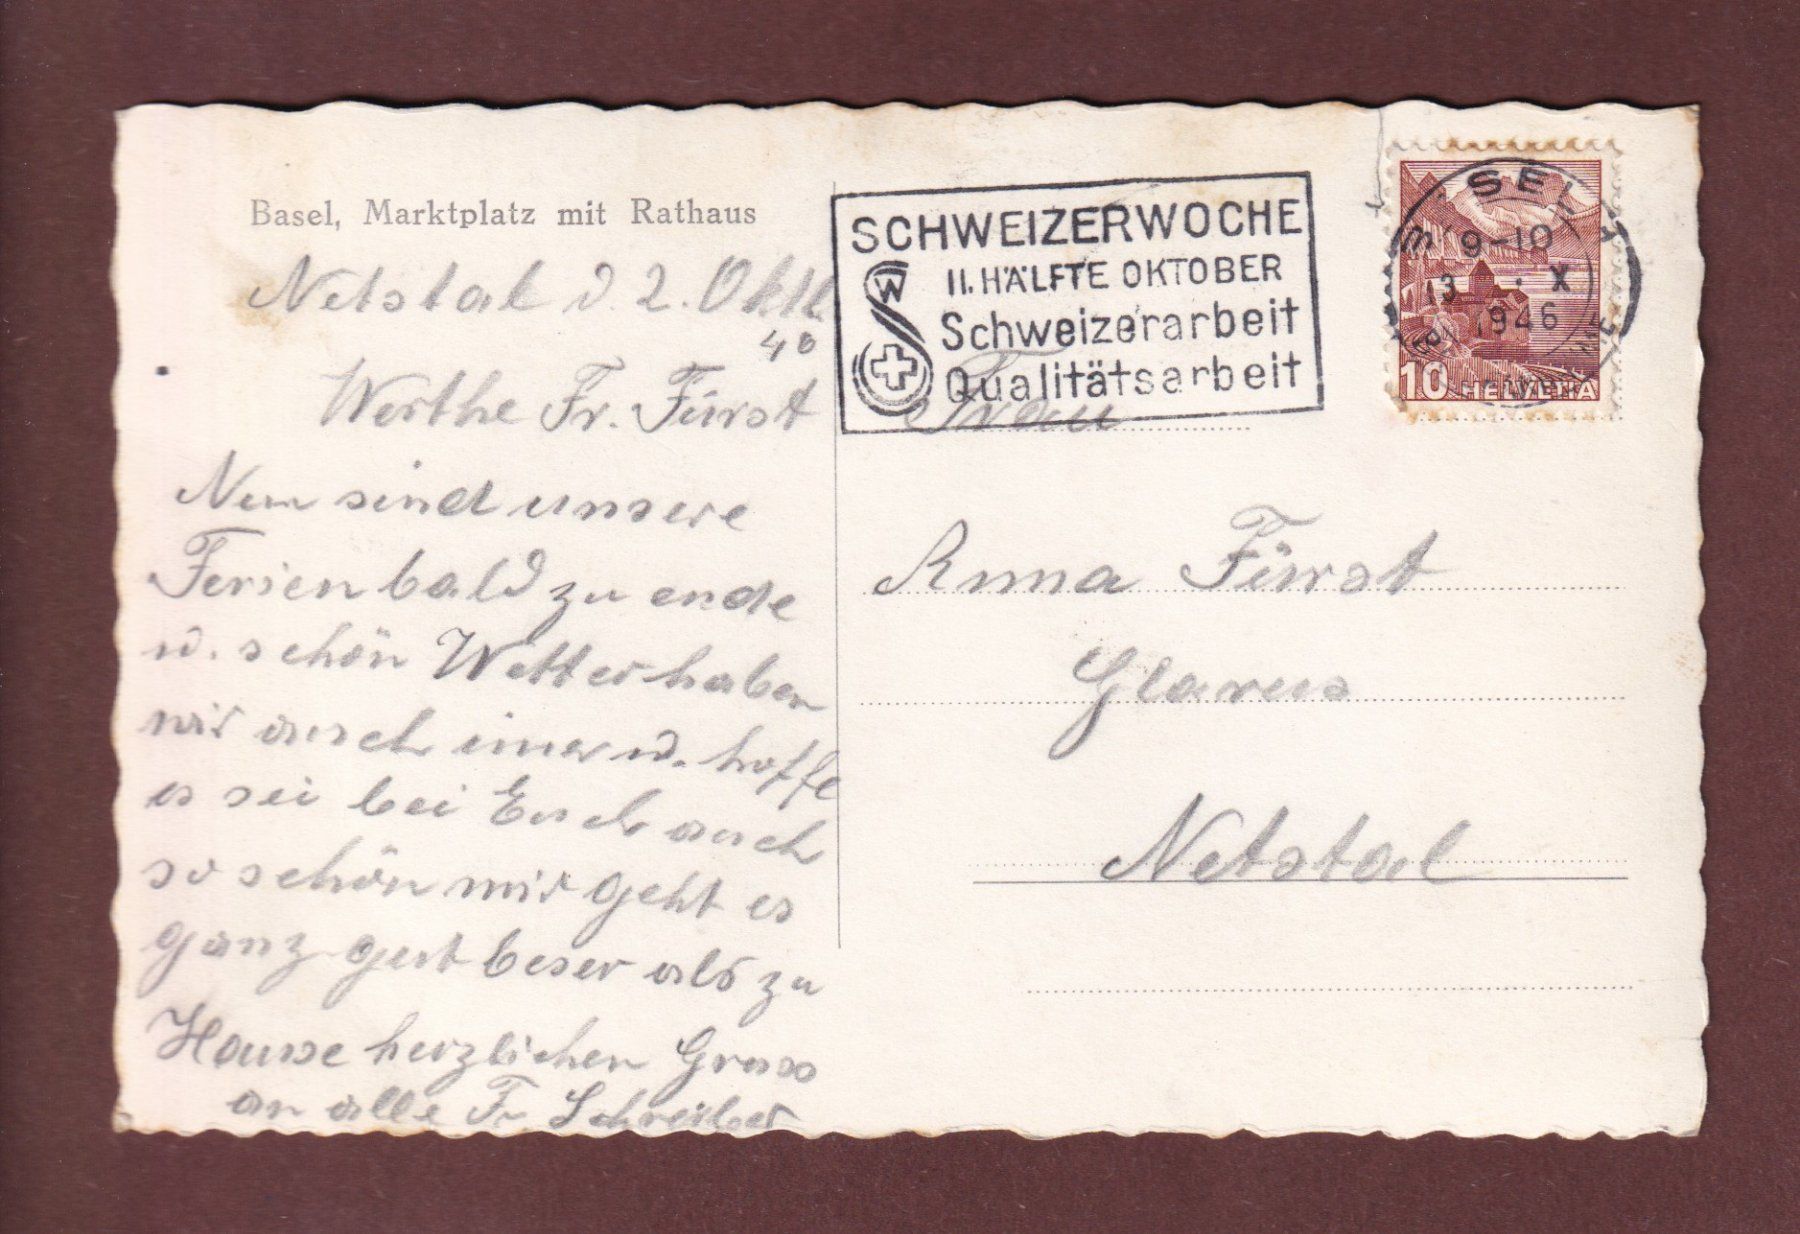 Basel, Marktplatz mit Rathaus
Netstal d. 2. Okt.
40
Werthe Fr. Fürst
Nun sind unsere
Ferien bald zu ende
u. schön Wetter haben
wir auch imer u. hoffe
es sei bei Euch auch
so schön mir geht es
ganz gut beser als zu
Hause herzlichen Gruss
an alle Fr Schreiber
SCHWEIZERWOCHE
II. HÄLFTE OKTOBER
Schweizerarbeit
Qualitätsarbeit
W
9-10
13 . X
1946
10 HELVETIA
Frau
Anna Fürst
Glarus
Netstal